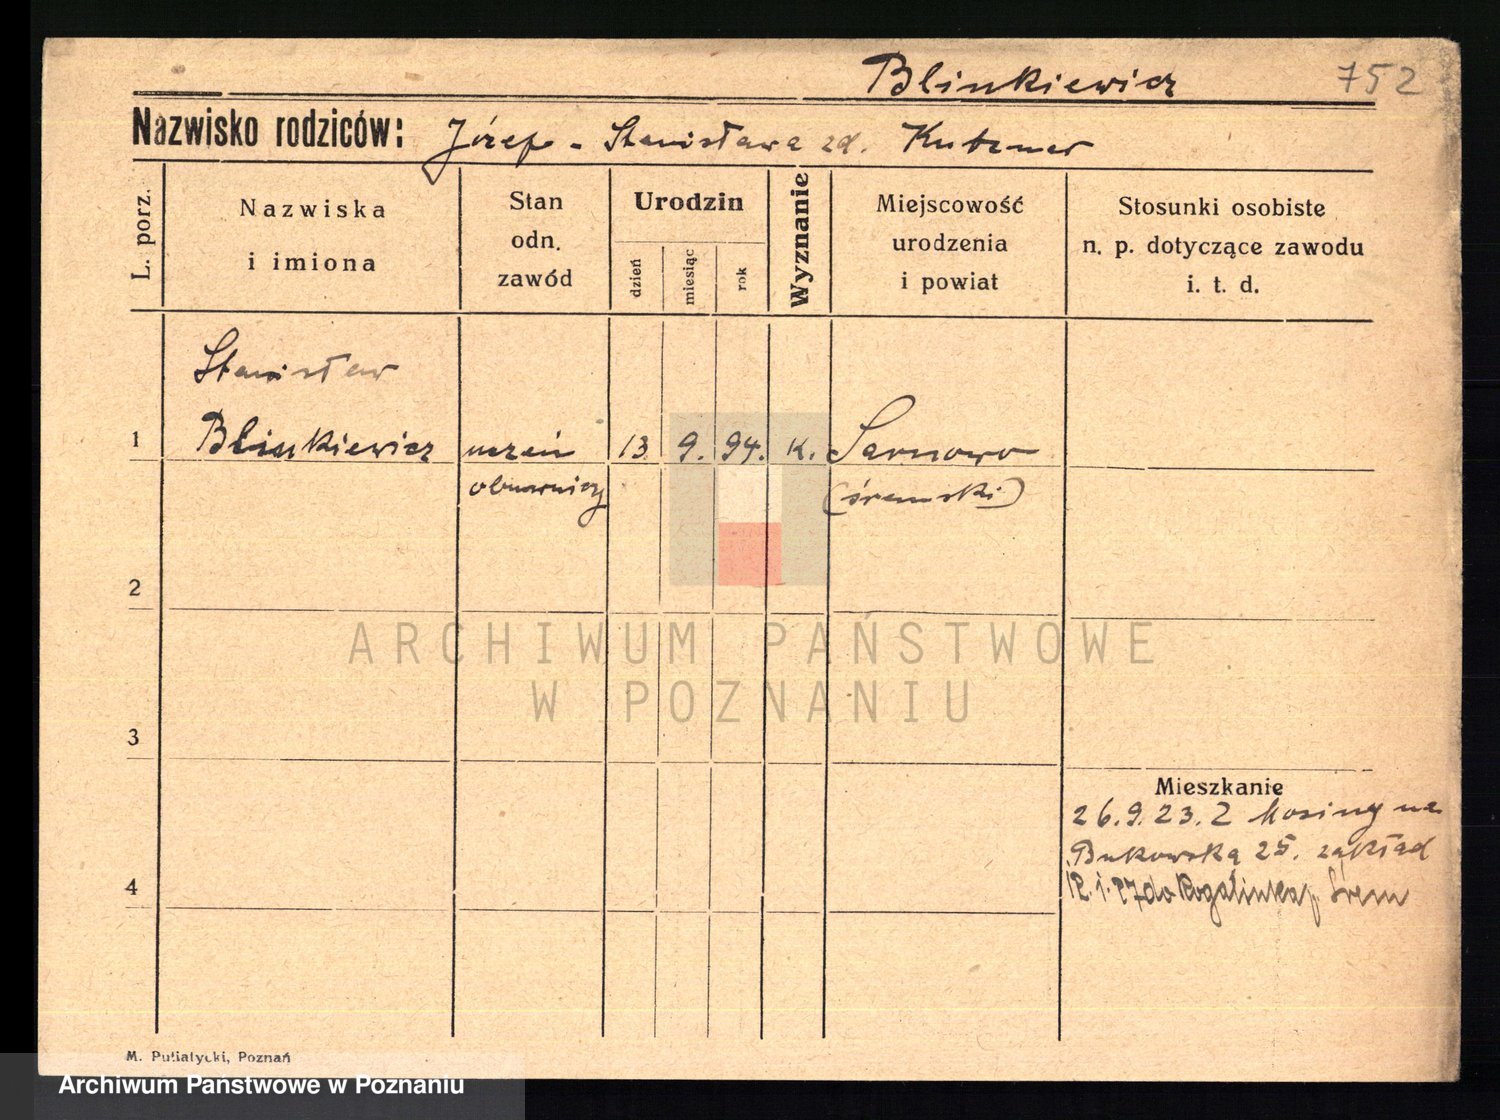 Blinkiewicz
752
Nazwisko rodziców: Józef - Stanisława zd. Kutzner
L. porz.
Nazwiska
i imiona
Stan
odn.
zawód
Urodzin
dzień
miesiąc
rok
Wyznanie
Miejscowość
urodzenia
i powiat
Stosunki osobiste
n. p. dotyczące zawodu
i. t. d.
Stanisław
1 Blinkiewicz uczeń 13 9. 94. K. Sarnowo
(śremski)
2
3
Mieszkanie
26.9.23. Z Mosiny na
Bukowską 25. zakład
4
do Rogalinka p. Śrem
M. Putiatycki, Poznań
ARCHIWUM PAŃSTWOWE
W POZNANIU
Archiwum Państwowe w Poznaniu